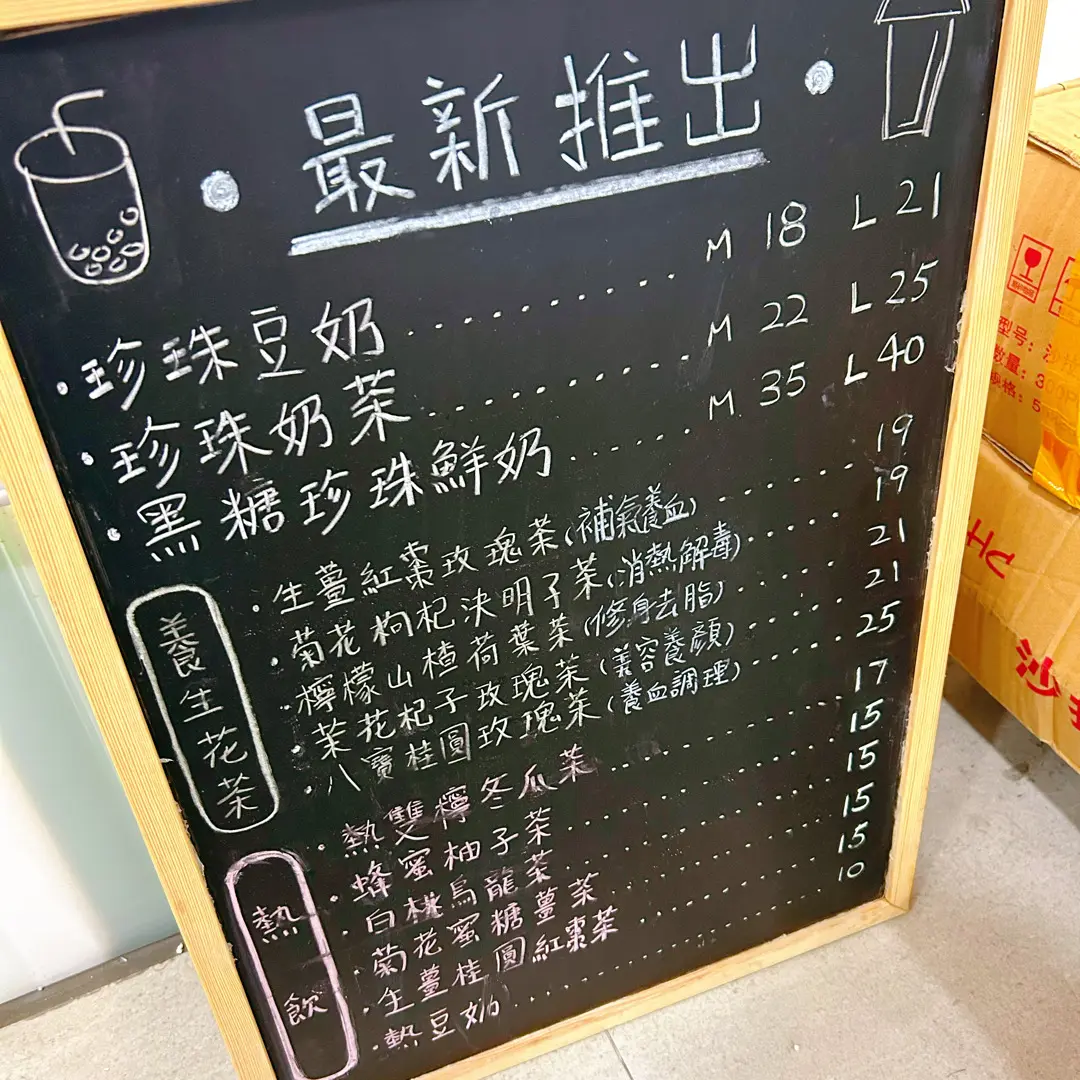 • 最新推出 •
• 珍珠豆奶 .......... M 18 L 21
• 珍珠奶茶 .......... M 22 L 25
• 黑糖珍珠鮮奶 ...... M 35 L 40
養生花茶
• 生薑紅棗玫瑰茶(補氣養血) ...... 19
• 菊花枸杞決明子茶(消熱解毒) ...... 19
• 檸檬山楂荷葉茶(修身去脂) ...... 21
• 茶花杞子玫瑰茶(美容養顏) ...... 21
• 八寶桂圓玫瑰茶(養血調理) ...... 25
熱飲
• 熱雙檸冬瓜茶 ...... 17
• 蜂蜜柚子茶 ...... 15
• 白桃烏龍茶 ...... 15
• 菊花蜜糖薑茶 ...... 15
• 生薑桂圓紅棗茶 ...... 15
• 熱豆奶 ...... 10
型号:
数量: 30
规格: 5
PH
沙